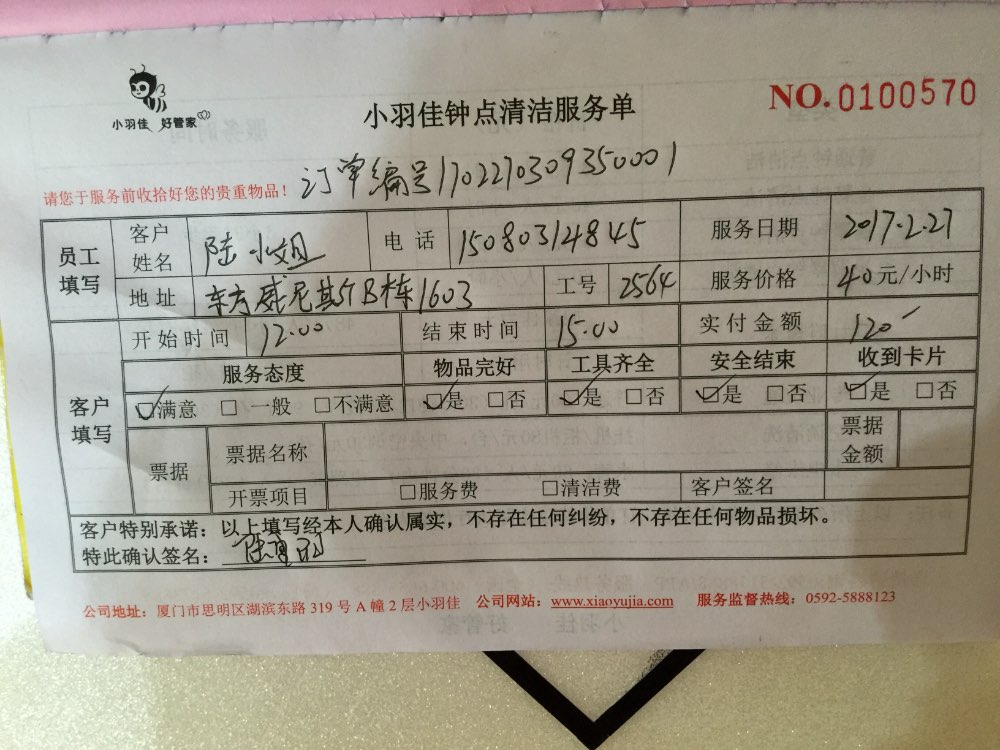 小羽佳 好管家
小羽佳钟点清洁服务单
NO.0100570
订单编号1702270309350001
请您于服务前收拾好您的贵重物品！
员工填写 客户姓名 陆小姐 电话 15080314845 服务日期 2017.2.27
地址 东方威尼其5T B栋1603 工号 2564 服务价格 40元/小时
客户填写 开始时间 12.00 结束时间 15.00 实付金额 120
服务态度 物品完好 工具齐全 安全结束 收到卡片
☑满意 □一般 □不满意 ☑是 □否 ☑是 □否 ☑是 □否 ☑是 □否
票据 票据名称 票据金额
开票项目 □服务费 □清洁费 客户签名
客户特别承诺：以上填写经本人确认属实，不存在任何纠纷，不存在任何物品损坏。
特此确认签名：
公司地址：厦门市思明区湖滨东路 319 号 A 幢 2 层小羽佳 公司网站：www.xiaoyujia.com 服务监督热线：0592-5888123